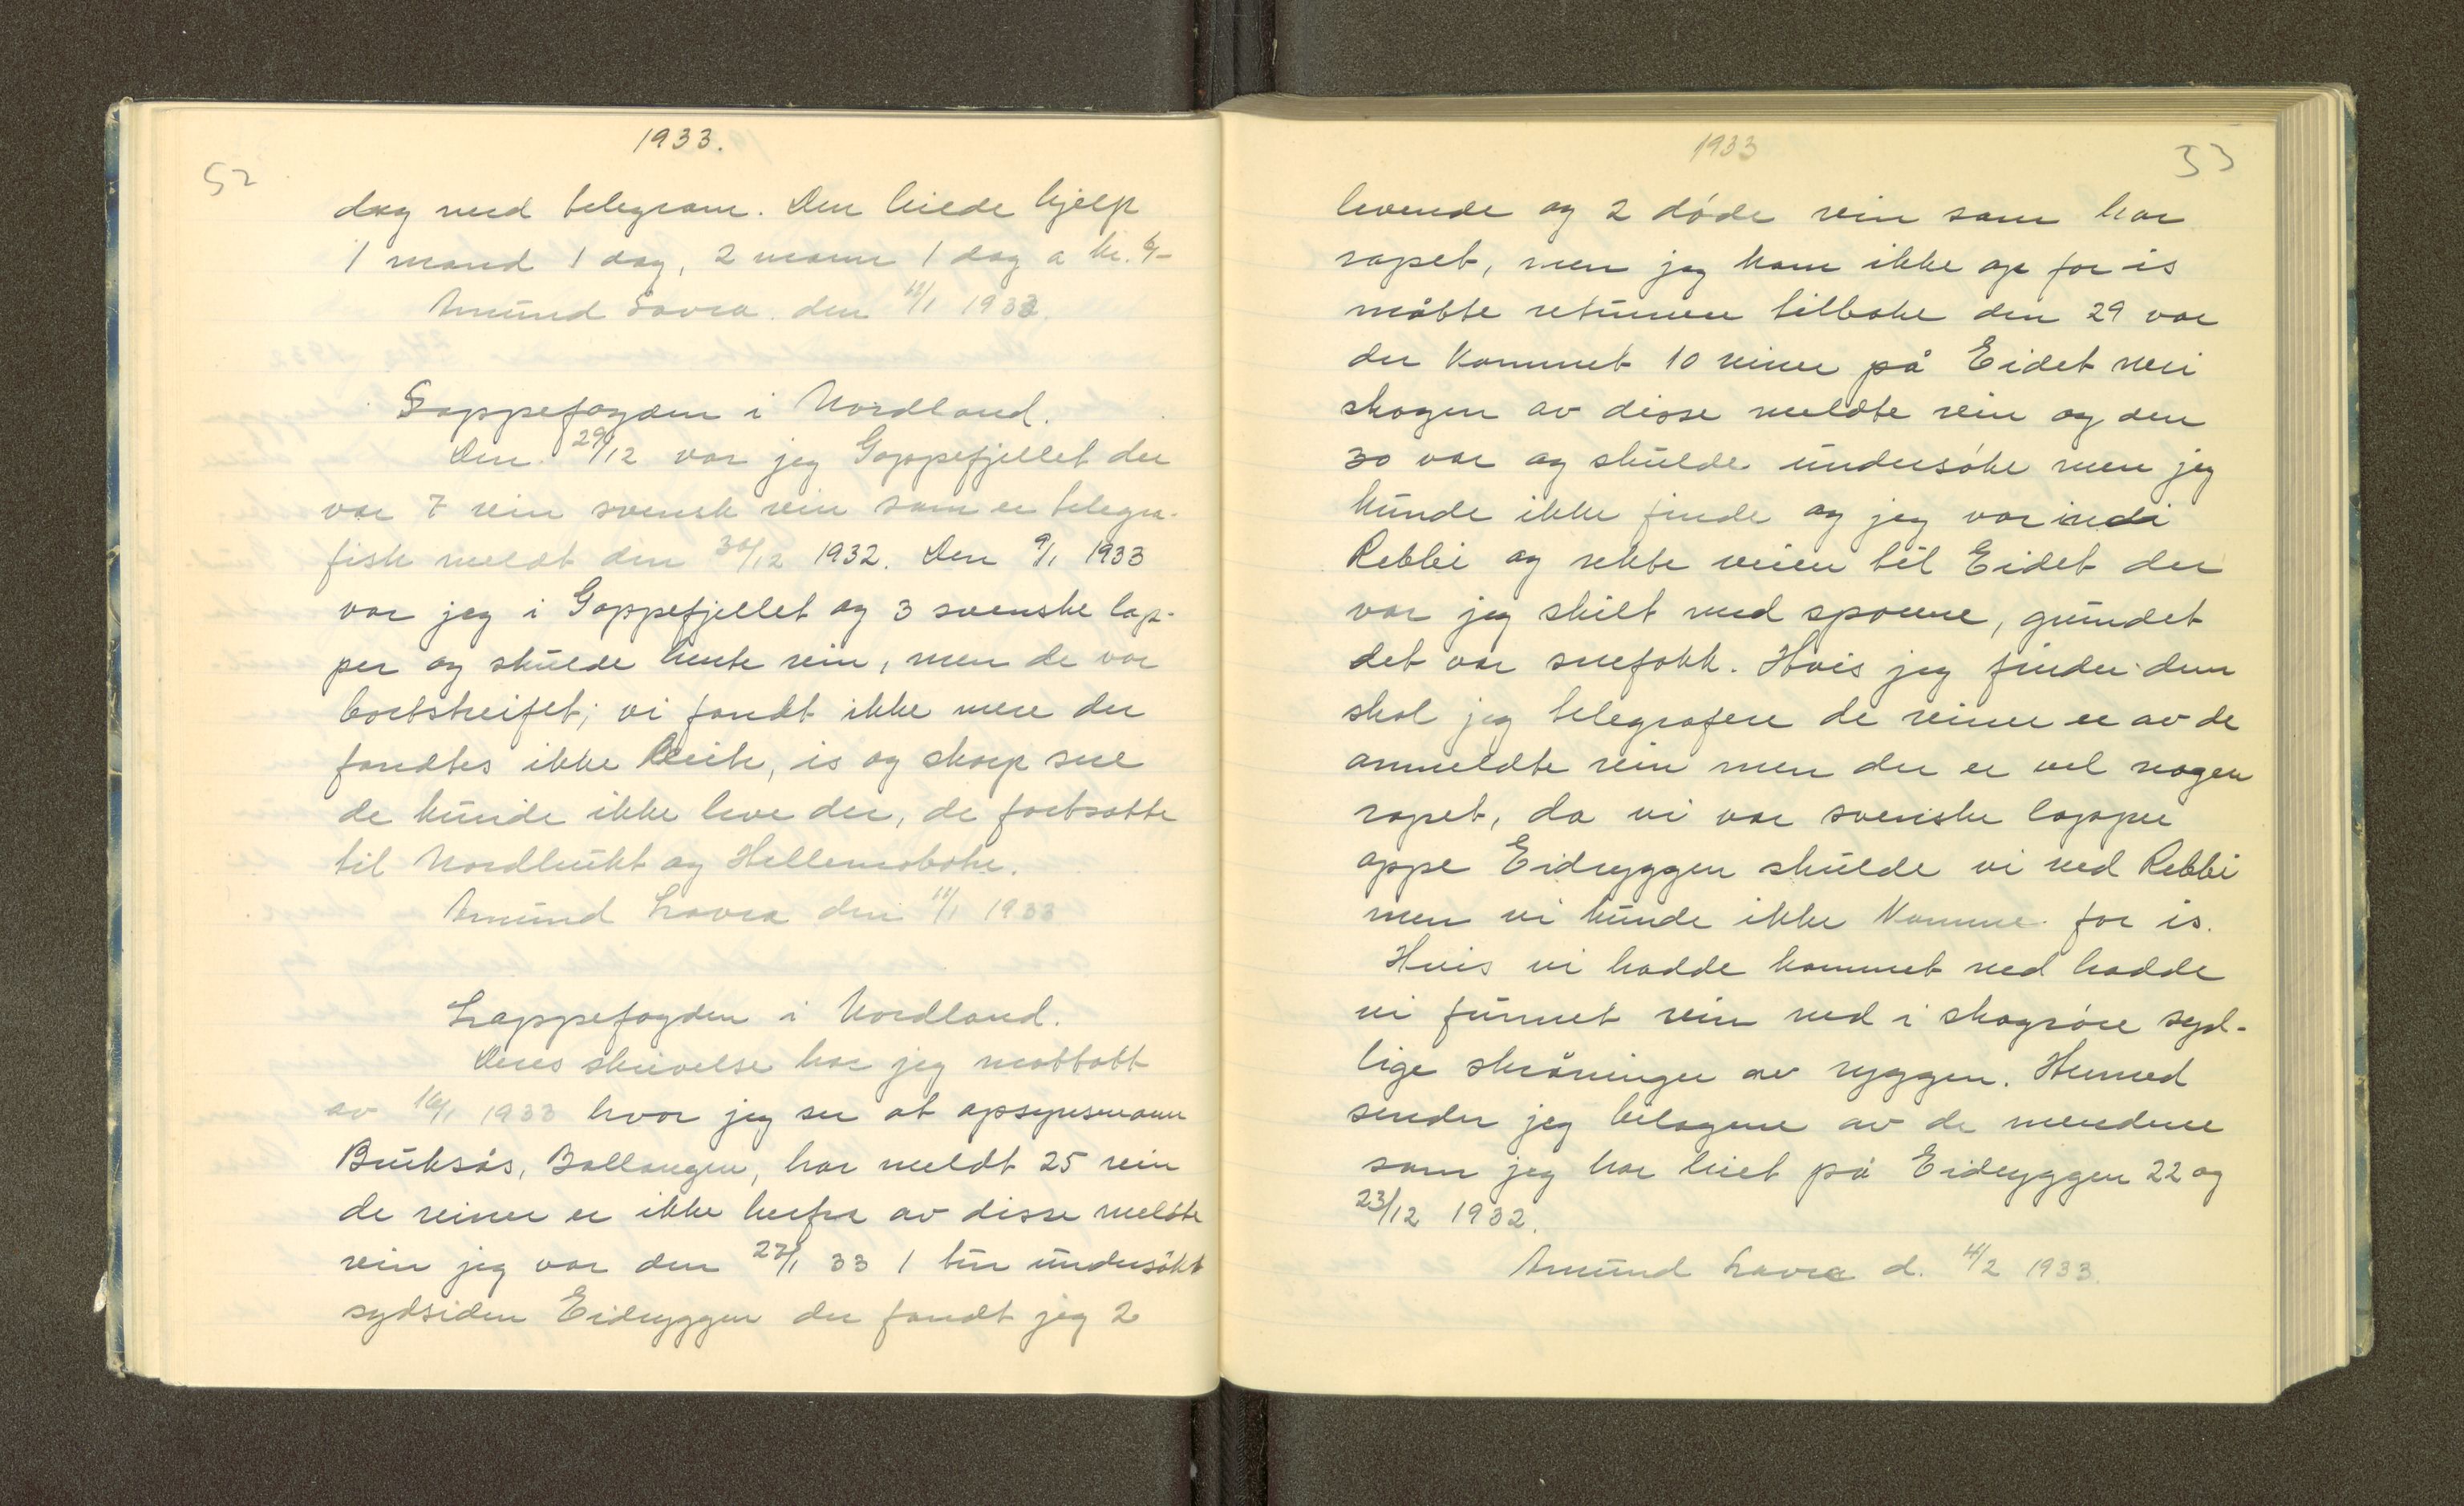 1933.
52
dag med telegram. Den leiede hjelp
1 mand 1 dag, 2 mann 1 dag a kr. 6/-
Amund Lavra. den 11/1 1933.
Lappefogden i Nordland.
Den. 29/12 var jeg Gappefjellet der
var 7 rein svensk rein som er telegra-
fisk meldt den 30/12 1932. Den 9/1 1933
var jeg i Gappefjellet og 3 svenske lap-
per og skulde hente rein, men de var
bortstreifet; vi fandt ikke mere der
fandtes ikke Beite, is og skarp sne
de kunde ikke leve der, de fortsatte
til Nordbukt og Hellemobotn.
Amund Lavra den 11/1 1933
Lappefogden i Nordland.
Deres skrivelse har jeg mottatt
av 16/1 1933 hvor jeg ser at opsynsmann
Buksås, Ballangen, har meldt 25 rein
de reiner er ikke herfra av disse meldte
rein jeg var den 27/1 33 1 tur undersøkt
sydsiden Eidryggen der fandt jeg 2
1933
53
levende og 2 døde rein som har
rapet, men jeg kom ikke op for is
måtte returnere tilbake den 29 var
der kommet 10 reiner på Eidet neri
skogen av disse meldte rein og den
30 var og skulde undersøke men jeg
kunde ikke finde og jeg var indi
Rebbi og rekte veien til Eidet der
var jeg skilt med sporene, grundet
det var snefokk. Hvis jeg finder dem
skal jeg telegrafere de reiner er av de
anmeldte rein men der er vel nogen
rapet, da vi var svenske lapper
oppe Eidryggen skulde vi ned Rebbi
men vi kunde ikke komme for is.
Hvis vi hadde kommet ned hadde
vi funnet rein ned i skogsøre syd-
lige skråninger av ryggen. Hermed
sender jeg bilagene av de mendene
som jeg har leiet på Eidryggen 22 og
23/12 1932.
Amund Lavra d. 4/2 1933.